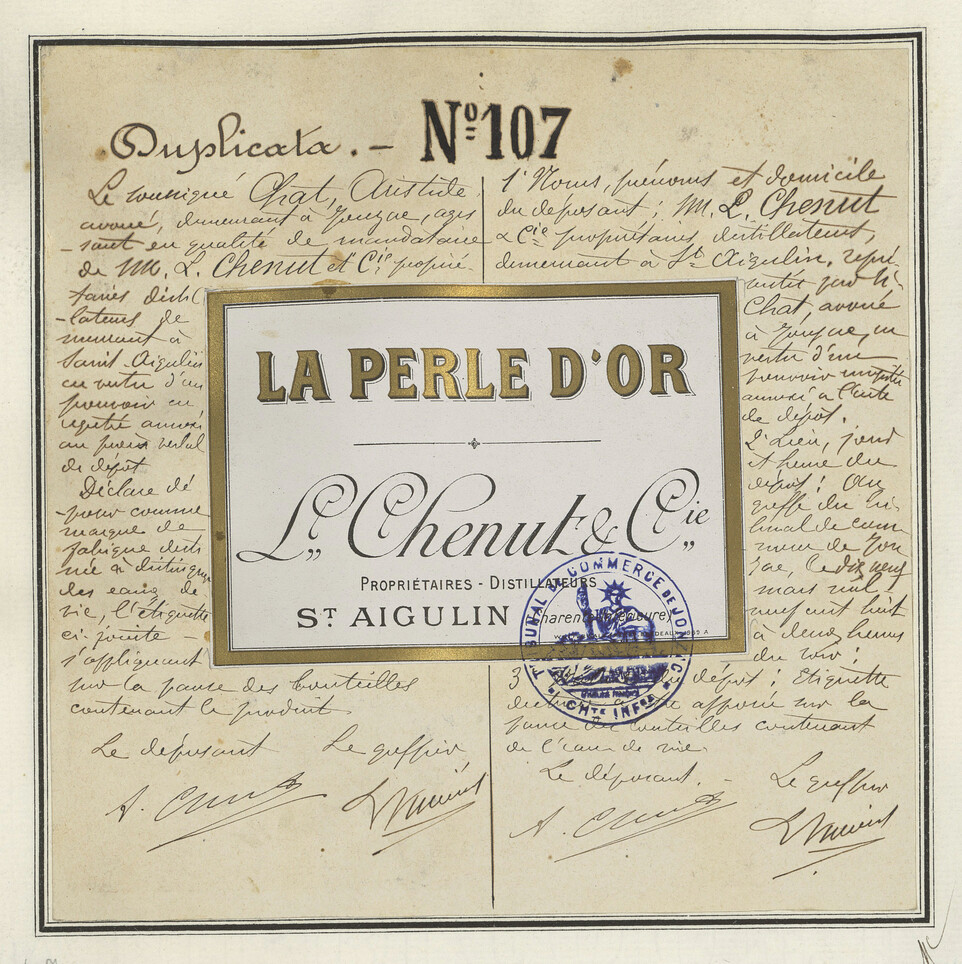 Duplicata. - Nº 107
Le soussigné Chat, Aristide,
avoué, demeurant à Jonzac, agis
-sant en qualité de mandataire
de MM. L. Chenut et Cie proprié-
taires distil
-lateurs de
meurant à
Saint Aigulin
en vertu d'un
pouvoir en
registré annexé
au procès verbal
de dépôt
Déclare dé
-poser comme
marque de
fabrique desti
née à distinguer
des eaux de
vie, l'étiquette
ci-jointe -
s'appliquant
sur la panse des bouteilles
contenant le produit.
Le déposant Le greffier
A. Chat
LA PERLE D'OR
L. Chenut & Cie
PROPRIÉTAIRES - DISTILLATEURS
ST. AIGULIN (Charente Inférieure)
TRIBUNAL DE COMMERCE DE JONZAC
CHTE INFRE
1º Noms, prénoms et domicile
du déposant : MM. L. Chenut
& Cie propriétaires, distillateurs,
demeurant à St Aigulin, repré-
sentés par Me
Chat, avoué
à Jonzac, en
vertu d'un
pouvoir enregistré
annexé à l'acte
de dépôt.
2º Lieu, jour
et heure du
dépôt : Au
greffe du tri-
bunal de com
-merce de Jon
zac, le dix neuf
mars mil
neuf cent huit
à deux heures
du soir ;
3 dépôt ; Etiquette
apposée sur la
panse des bouteilles contenant
de l'eau de vie.
Le déposant. - Le greffier
A. Chat